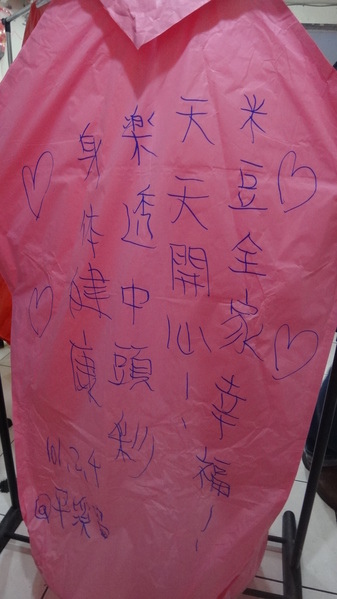 米豆全家幸福~~
天天開心~~
樂透中頭彩
身体健康
101.2.4
@平溪